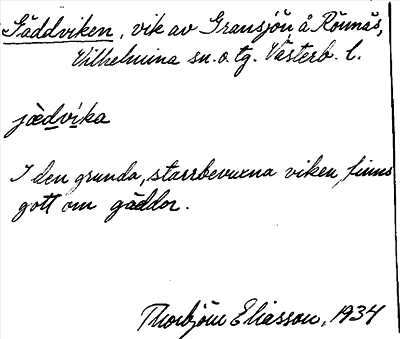 Gäddviken, vik av Gransjön å Rönnäs,
Vilhelmina sn. o. tg. Västerb. l.
jèdvíka
I den grunda, starrbevuxna viken, finns
gott om gäddor.
Thorbjörn Eliasson, 1934